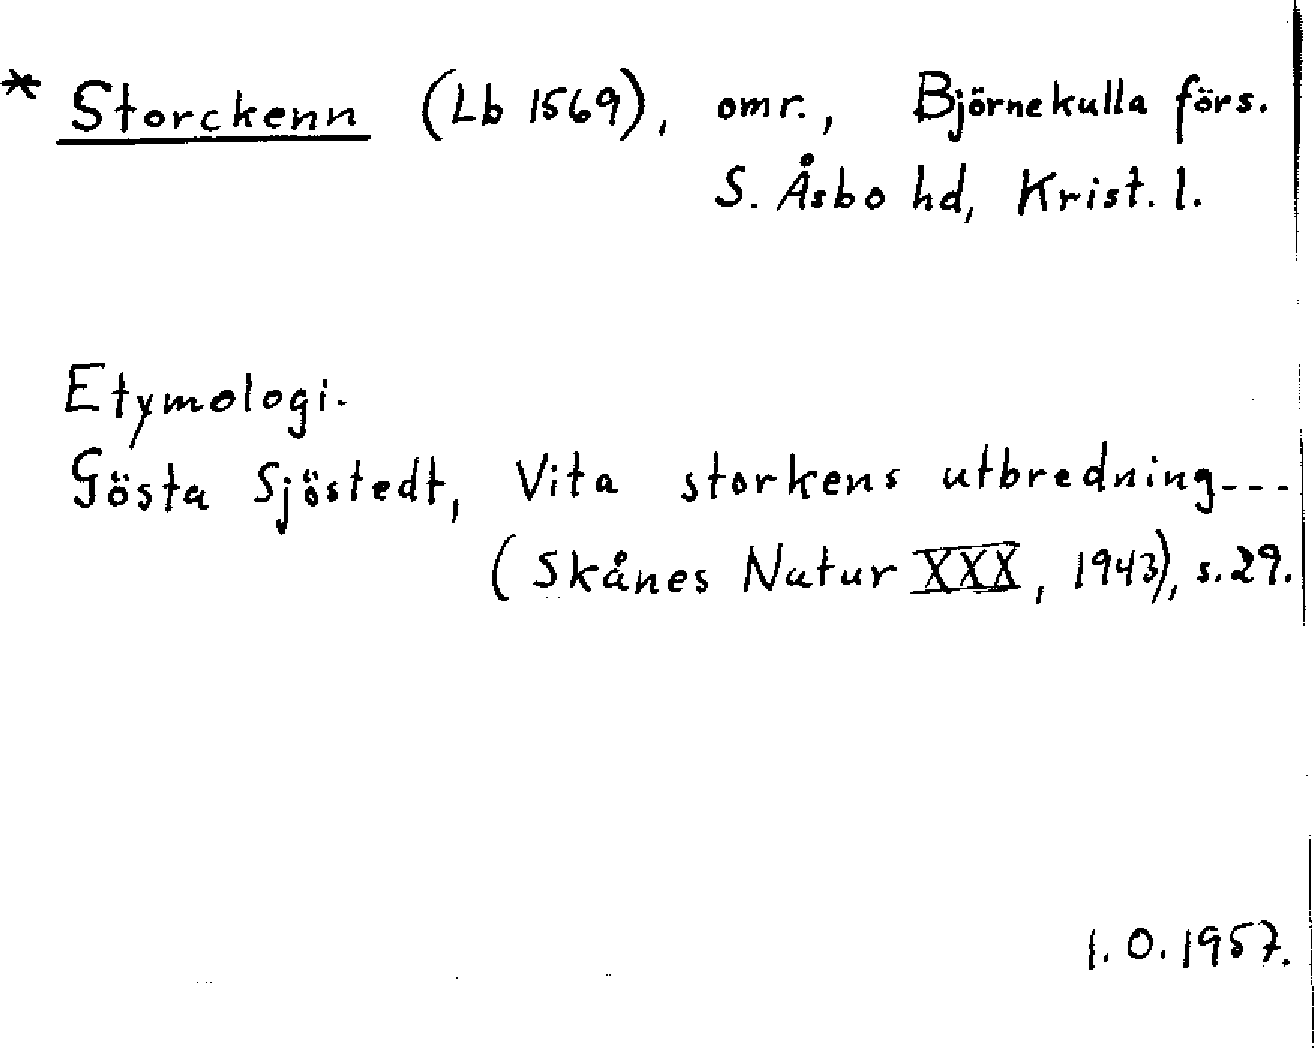 * Storckenn (Lb 1569), omr., Björnekulla förs.
S. Åsbo hd, Krist. l.
Etymologi.
Gösta Sjöstedt, Vita storkens utbredning---
(Skånes Natur XXX, 1943), s. 29.
I. O. 1957.